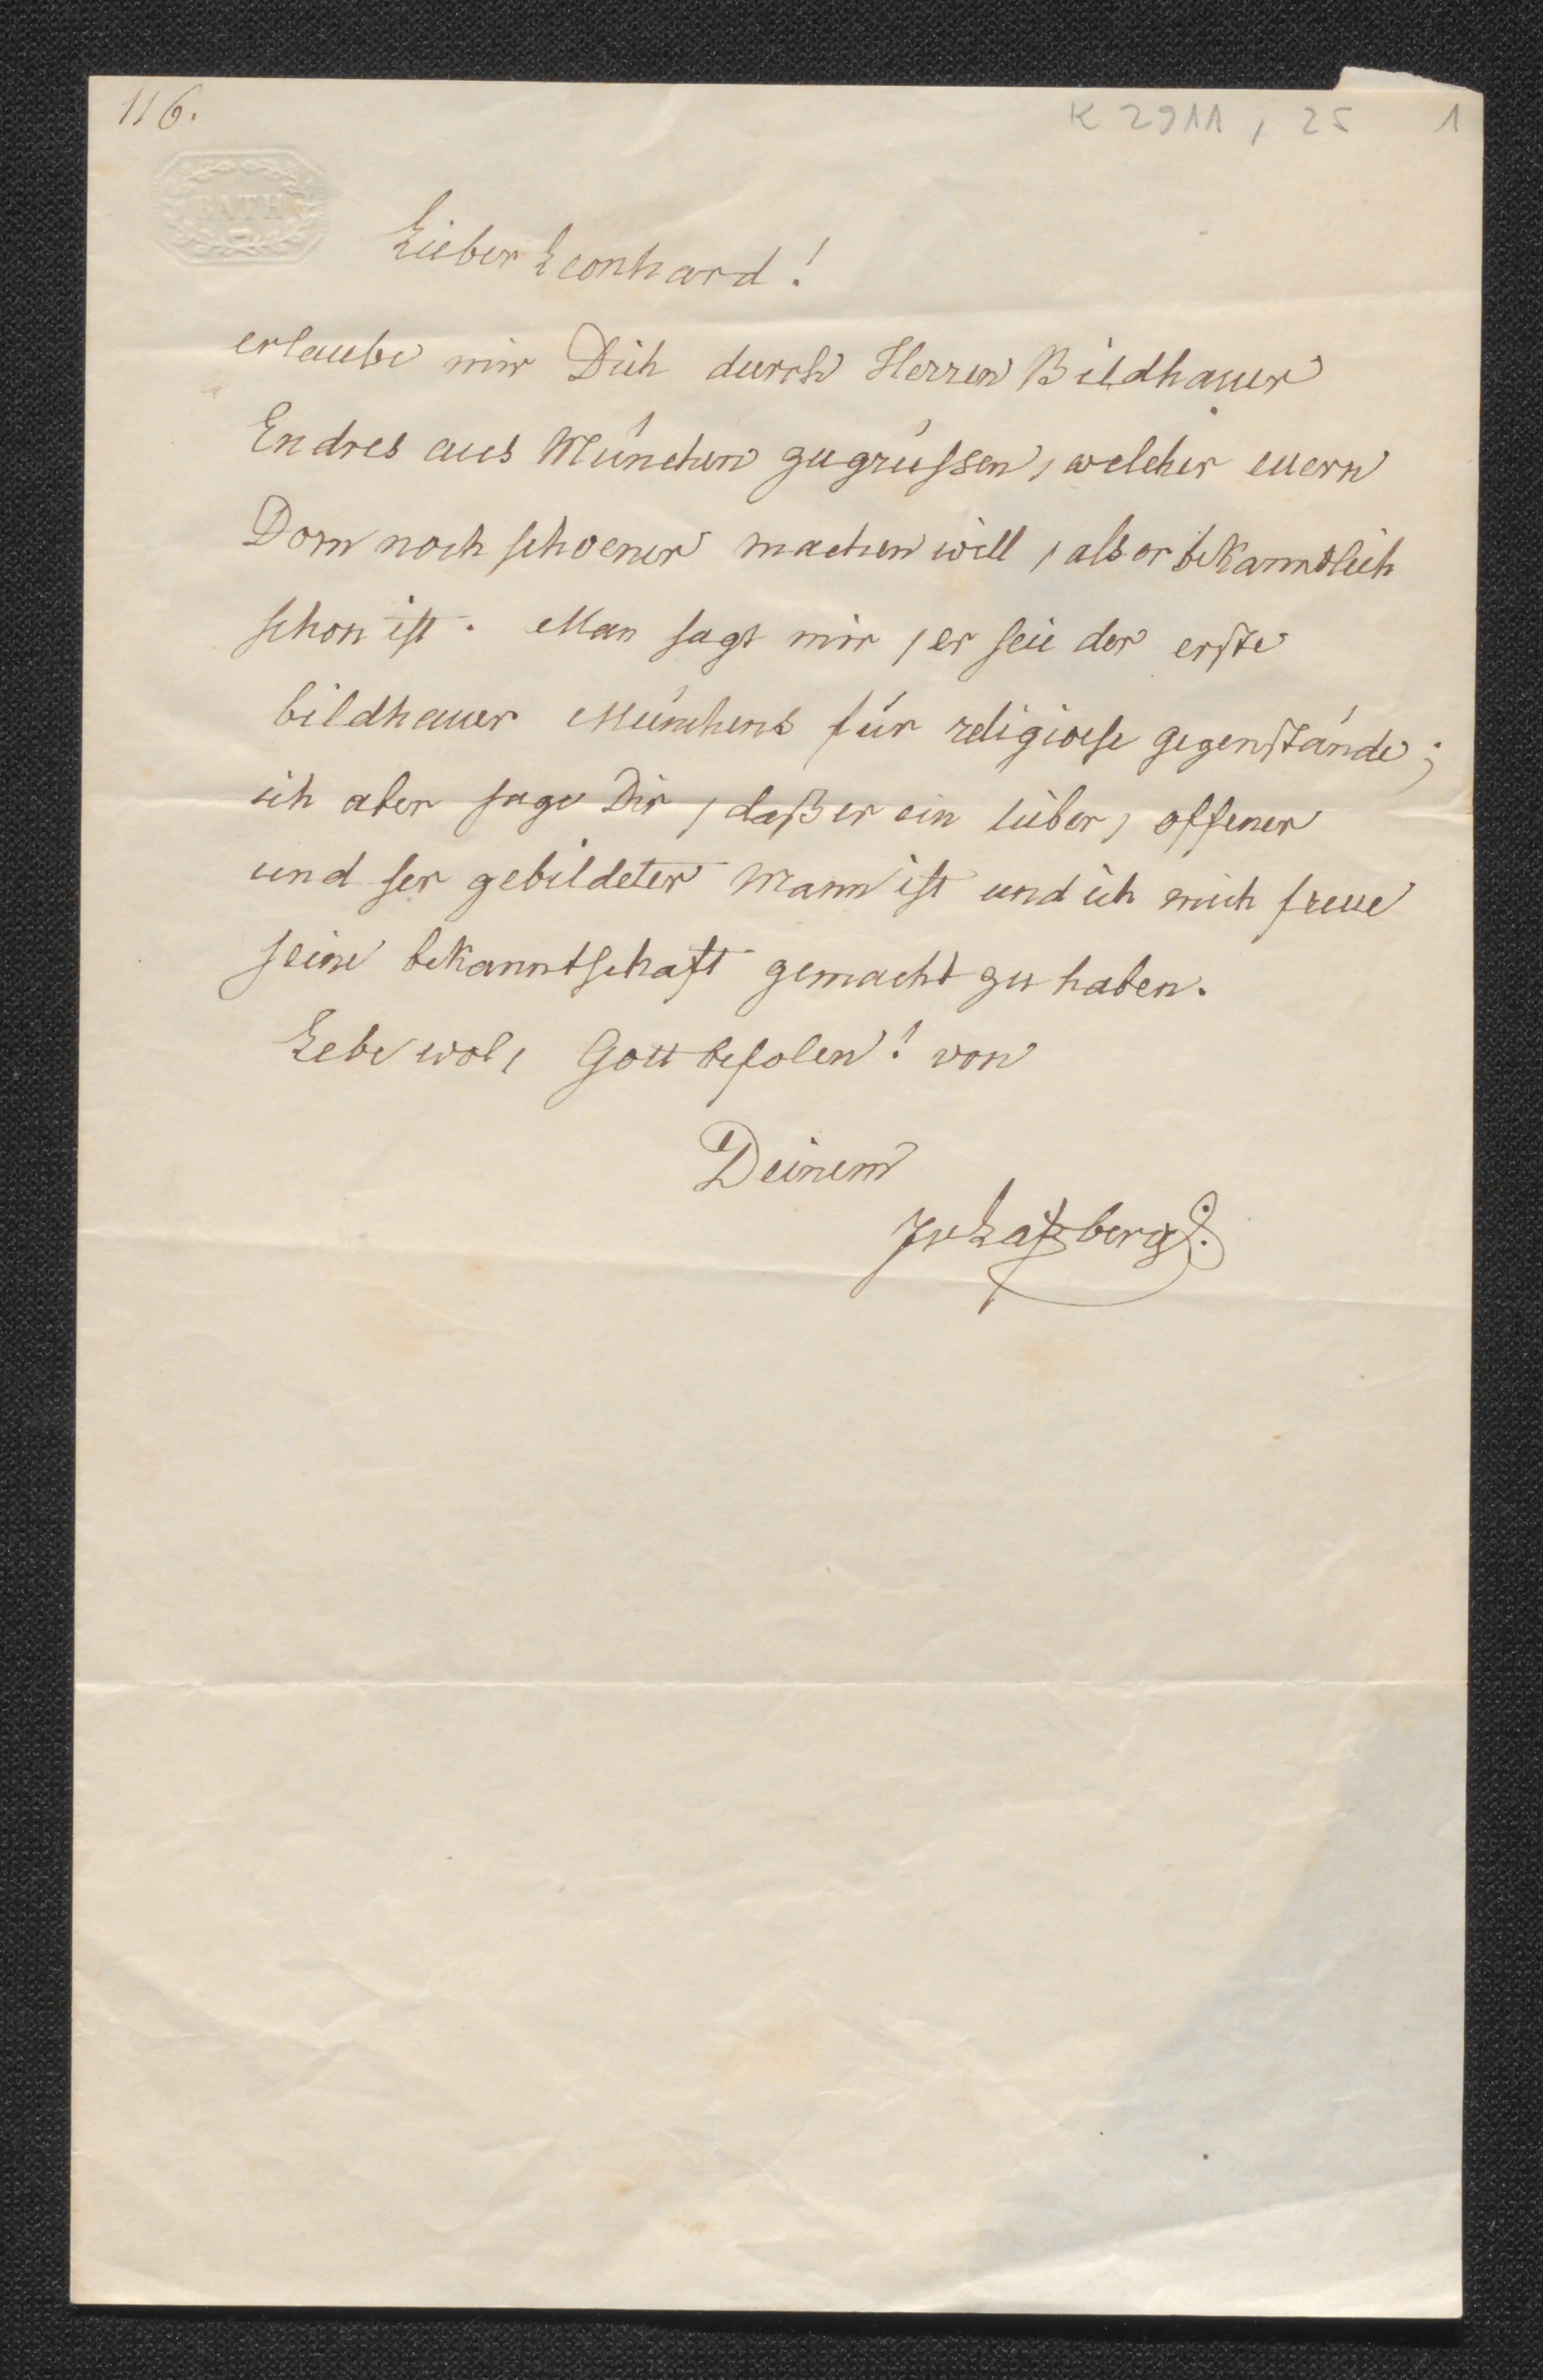 116.
K 2911, 25 1
BATH
Lieber Leonhard!
erlaube mir Dich durch Herren Bildhauer
Endres aus München zugrüssen, welcher euern
Dom noch schoener machen will, als er bekanntlich
schon ist. Man sagt mir, er seie der erste
bildhauer Münchens für religioese gegenstände;
ich aber sage Dir, daß er ein lieber, offener
und ser gebildeter Mann ist und ich mich freue
seine bekanntschaft gemacht zu haben.
Lebe wol, Gott befolen! von
Deinem
JvLaßberg.